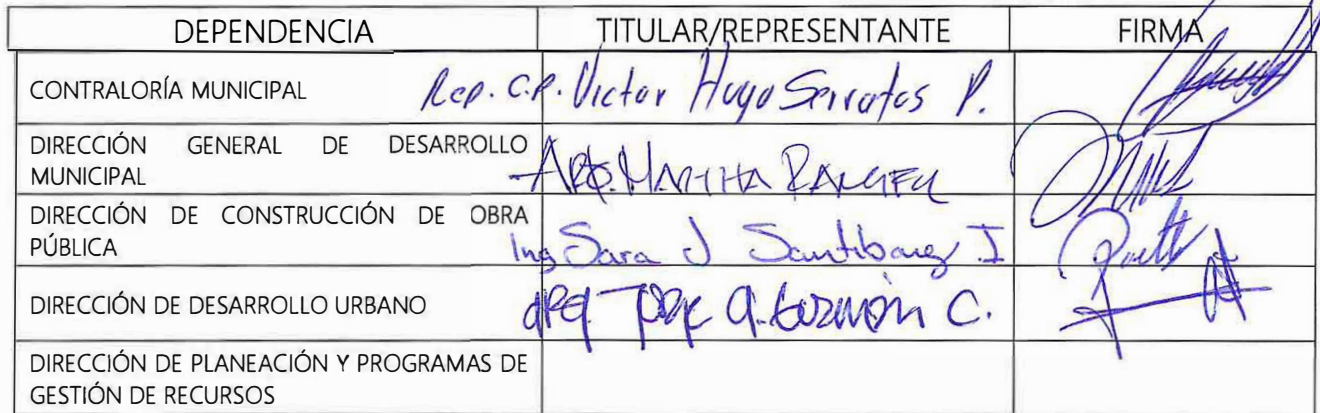 DEPENDENCIA TITULAR/REPRESENTANTE FIRMA
CONTRALORÍA MUNICIPAL Rep. C.P. Victor Hugo Serratos P.
DIRECCIÓN GENERAL DE DESARROLLO
MUNICIPAL
ARQ. MARTHA RANGEL
DIRECCIÓN DE CONSTRUCCIÓN DE OBRA
PÚBLICA
Ing Sara J Santibañez J
DIRECCIÓN DE DESARROLLO URBANO Arq. Jorge A. Guzmán C.
DIRECCIÓN DE PLANEACIÓN Y PROGRAMAS DE
GESTIÓN DE RECURSOS